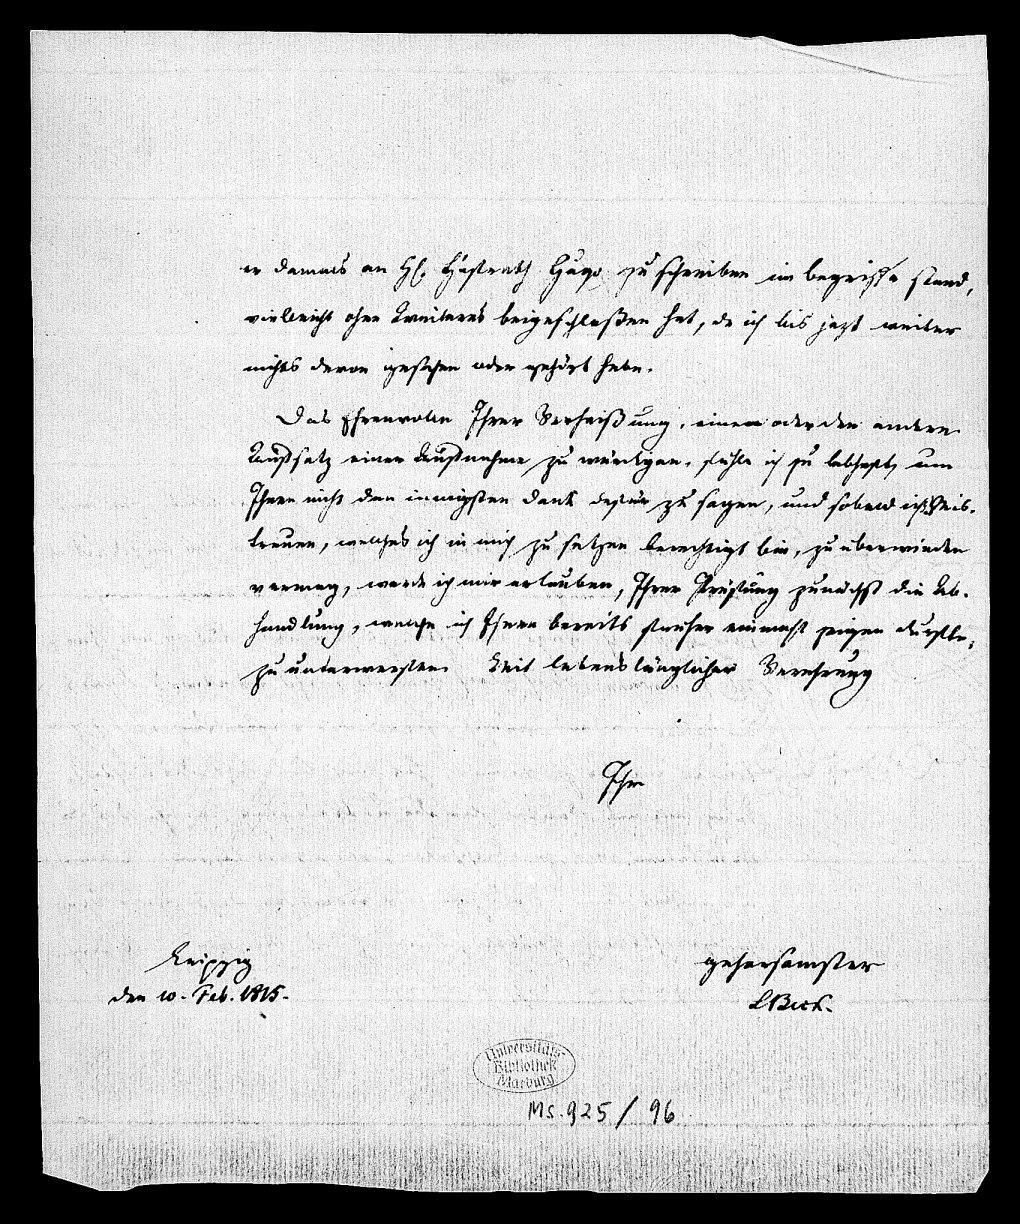 er damals an H. Hofrath Hugo zu schreiben im begriffe stand,
vielleicht ohne Weiteres beigeschloßen hat, da ich bis jezt weiter
nichts davon gesehen oder gehört habe.
Das Ehrenvolle Ihrer Verheißung, einen oder den andern
Aufsatz einer Aufnahme zu würdigen, fühle ich zu lebhaft, um
Ihnen nicht den innigsten Dank dafür zu sagen, und sobald ich Mis-
trauen, welches ich in mich zu setzen berechtigt bin, zu überwinden
vermag, werde ich mir erlauben, Ihrer Prüfung zunächst die Ab-
handlung, welche ich Ihnen bereits früher einmahl zeigen durfte,
zu unterwerfen. Mit lebenslänglicher Verehrung
Ihr
Leipzig
den 10. Feb. 1815.
gehorsamster
Universitäts-
Bibliothek
Marburg
Ms. 925 / 96